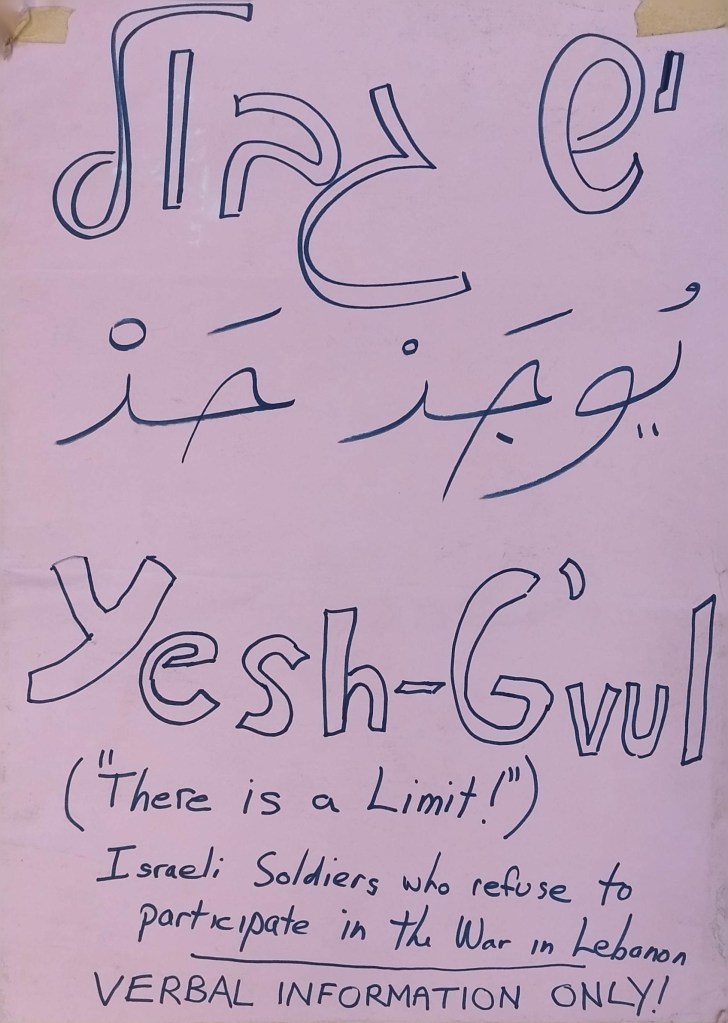 יש גבול
يُوجَدْ حَدْ
Yesh-G'vul
("There is a Limit!")
Israeli Soldiers who refuse to
participate in the War in Lebanon
VERBAL INFORMATION ONLY!